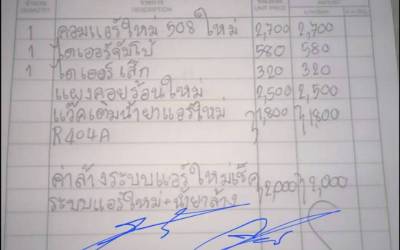 QUANTITY DESCRIPTION UNIT PRICE
1 คอมแอร์ใหม่ 508 ใหม่ 2,700 2,700
1 ไดเออร์จัมโบ้ 580 580
1 ไดเออร์เล็ก 320 320
แผงคอยร้อนใหม่ 2,500 2,500
แว๊คเติมน้ำยาแอร์ใหม่ 1,800 1,800
R404A
ค่าล้างระบบแอร์ใหม่เช็ค 2,000 2,000
ระบบแอร์ใหม่+น้ำยาล้าง